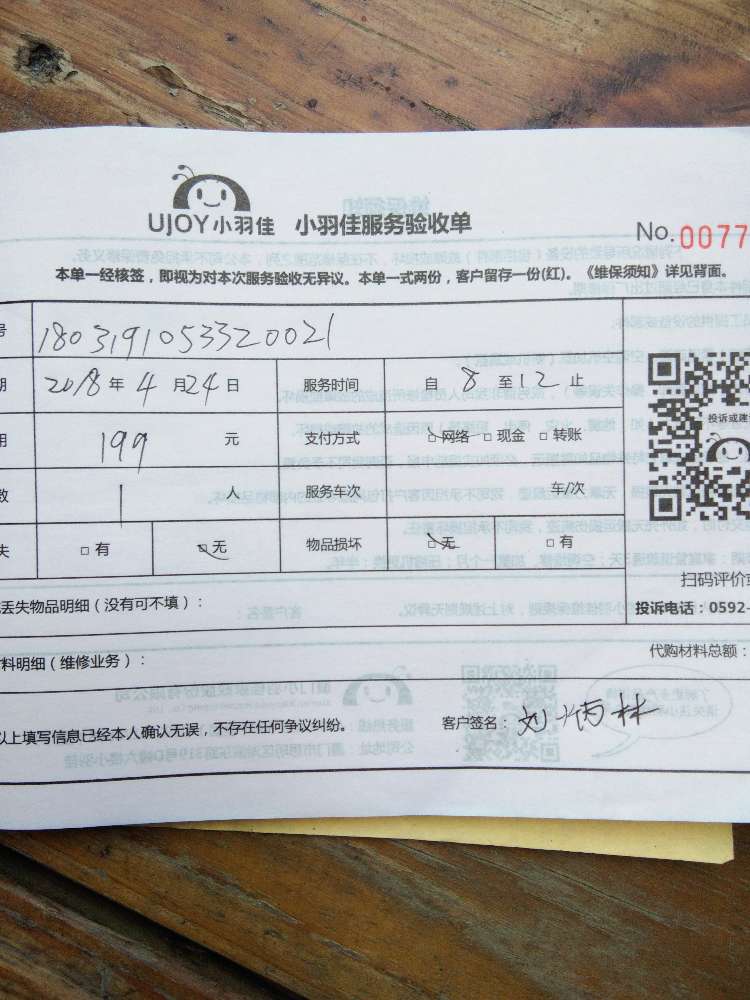 UJOY小羽佳 小羽佳服务验收单
No. 0077
本单一经核签，即视为对本次服务验收无异议。本单一式两份，客户留存一份(红)。《维保须知》详见背面。
号 1803191053320021
期 2018年4月24日 服务时间 自8至12止
用 199 元 支付方式 □网络 □现金 □转账
数 1 人 服务车次 车/次
失 □有 □无 物品损坏 □无 □有
投诉或建
扫码评价或
投诉电话：0592-
丢失物品明细（没有可不填）：
料明细（维修业务）： 代购材料总额：
以上填写信息已经本人确认无误，不存在任何争议纠纷。 客户签名：刘炳林